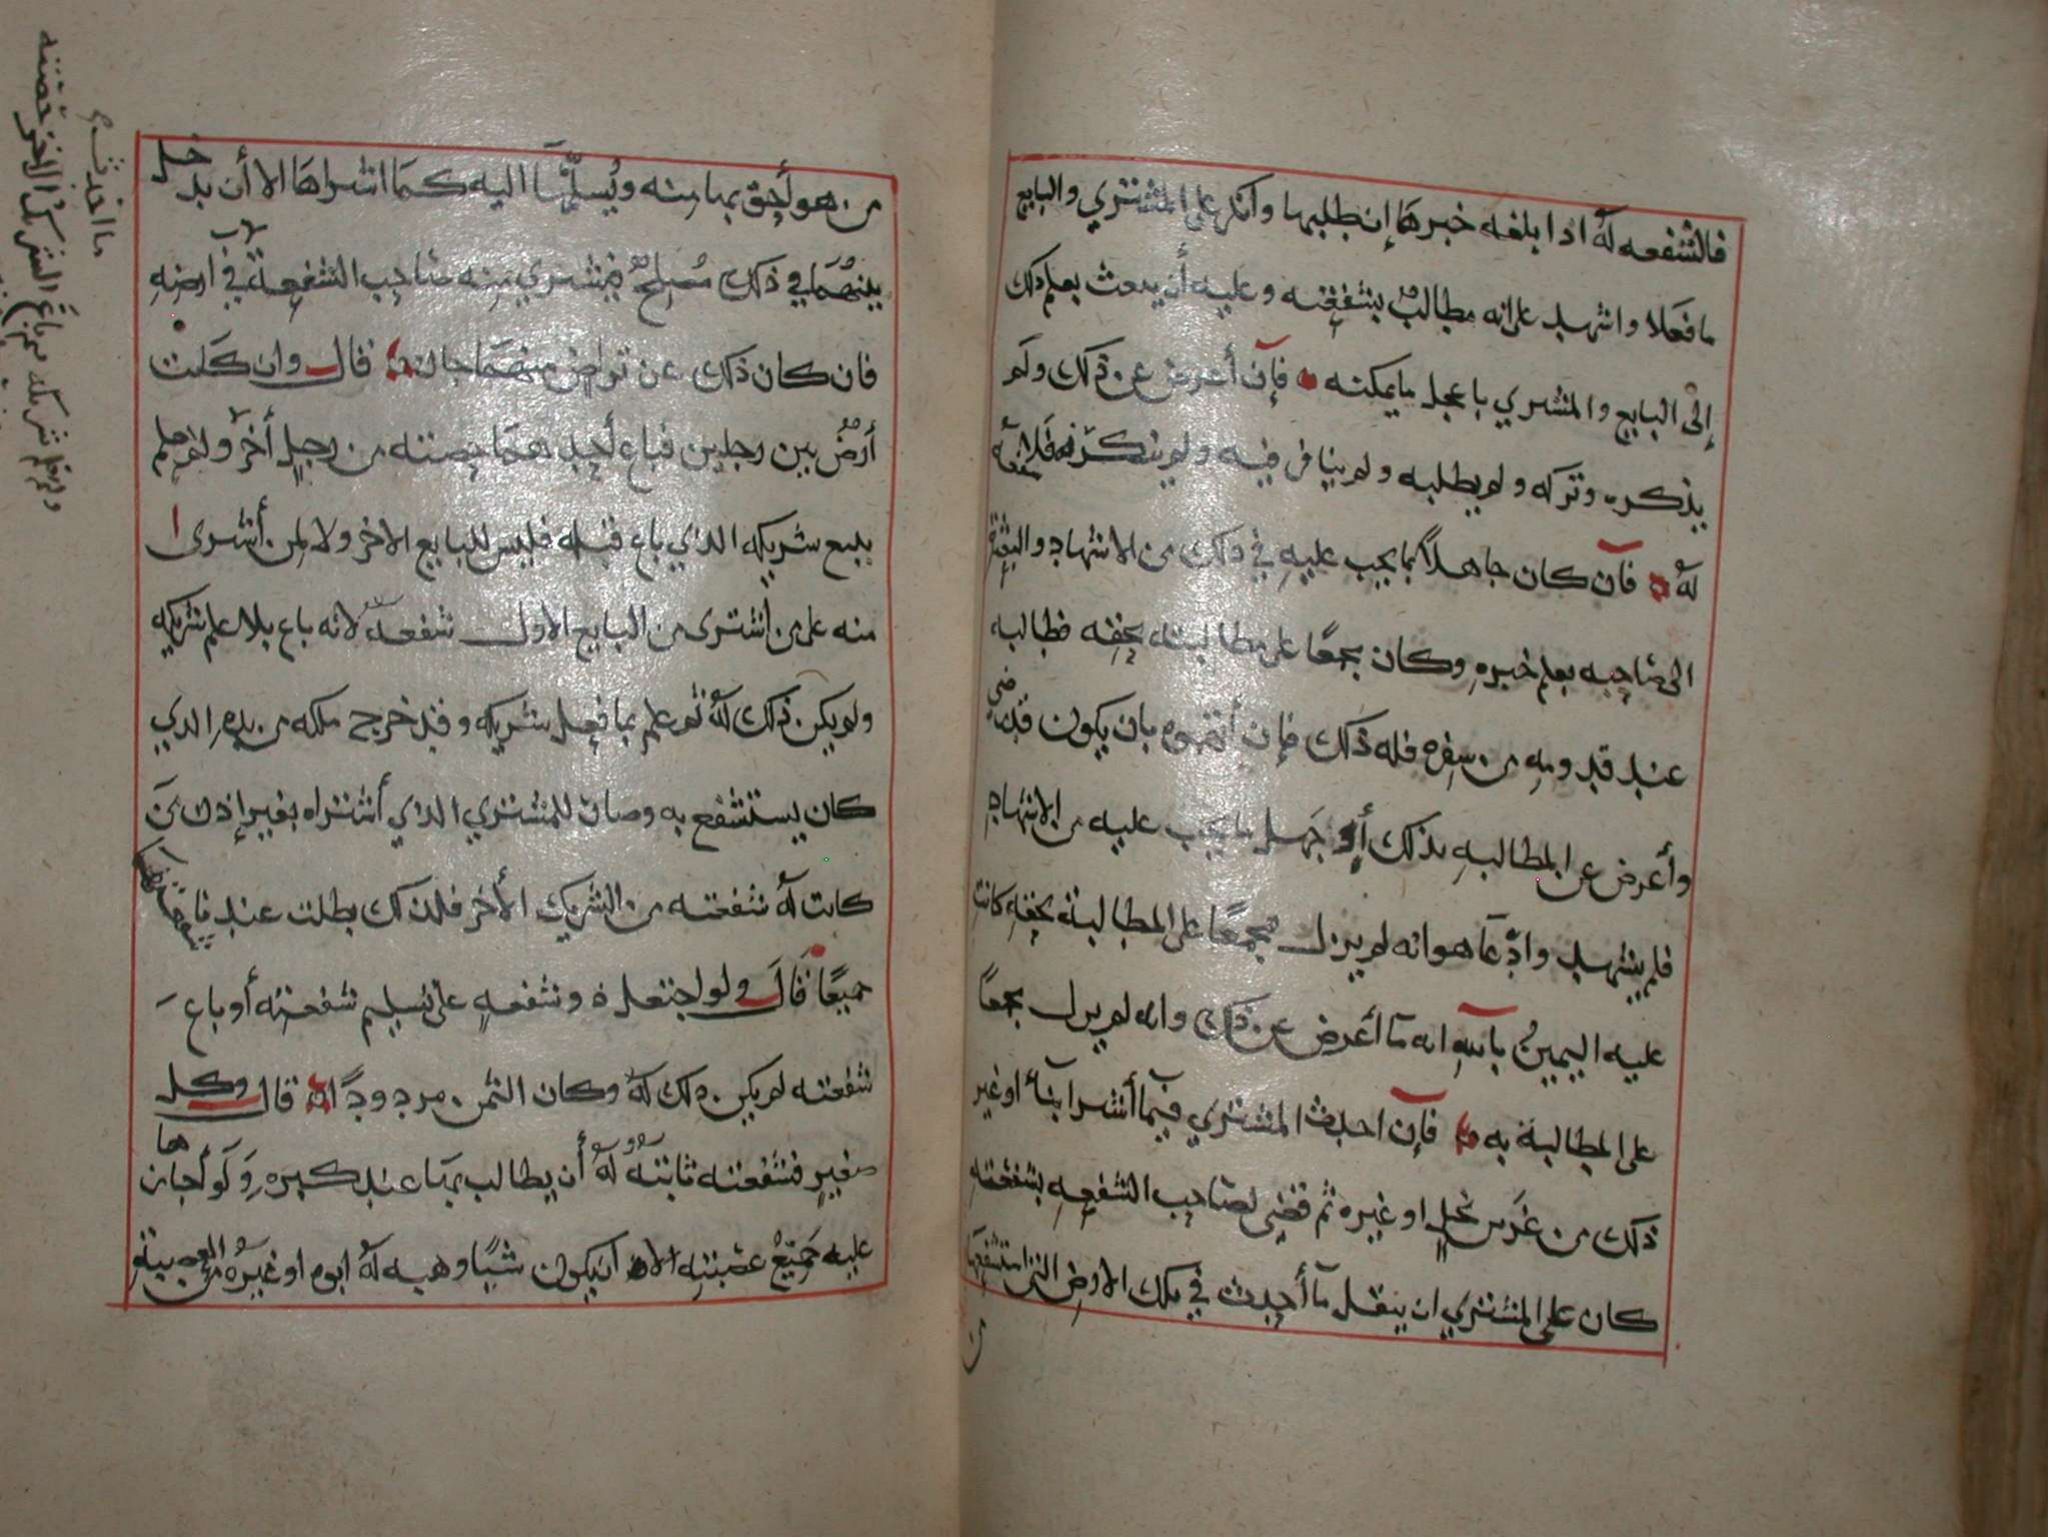 فالشفعه له اذا بلغه خبرها إن طلبها وأنكر على المشتري والبايع
ما فعلا واشهد على انه مطالبٌ بشفعته وعليه أن يبعث بعلم ذلك
إلى البايع والمشتري باعجل ما يمكنه فإن أعرض عن ذلك ولم
يذكره وتركه ولم يطلبه ولم ينافر فيه ولم ينكره فلا شفعه
له فإن كان جاهلاً بما يجب عليه في ذلك من الاشهاد والبعثة
الى صاحبه بعلم خبره وكان مجمعًا على مطالبته بحقه فطالبه
عند قدومه من سفره فله ذلك فإن أتهموه بان يكون قد رضي
وأعرض عن المطالبه بذلك أو جهل ما يجب عليه من الاشهاد
فلم يشهد وادّعا هو انه لم يزل مجمعًا على المطالبة بحقه كانت
عليه اليمينُ بالله انه ما أعرض عن ذلك وانه لم يزل مجمعًا
على المطالبة به فإن احدث المشتري فيما أشترا بنآء او غير
ذلك من غرس نخلٍ او غيره ثم قضي لصاحب الشفعه بشفعته
كان على المشتري ان ينقل ما أحدث في ملك الارض التي استشفعها
من هو أحق بها منه ويُسلّمها اليه كما اشتراها الا أن يدخل
بينهما في ذلك مُصلحٌ فيشتري منه صاحب الشفعة في ارضه
فان كان ذلك عن تراضٍ منهما جاز قال وان كانت
أرضٌ بين رجلين فباع أحدهما حصته من رجلٍ أخر ولم يعلم
ببيع شريكه الذي باع قبله فليس للبايع الاخر ولا لمن أشترى
منه على من اشترى من البايع الاول شفعه لانه باع بلا علم شريكه
ولم يكن ذلك له ثم علم بما فعل شريكه وقد خرج ملكه من يده الذي
كان يستشفع به وصار للمشتري الذي أشتراه بغير إذن من
كانت له شفعته من الشريك الأخر فلذلك بطلت عندنا شفعتهما
جميعًا قال ولو اجتعل ذو شفعهٍ على تسليم شفعته أو باع
شفعته لم يكن ذلك له وكان الثمن مردودًا قال وكل
صغيرٍ فشفعته ثابتهٌ له أن يطالب بها عند كبره ولو أجازها
عليه جميعُ عصبته الا ان يكون شيًا وهبه له ابوه او غيره من
ما احدث